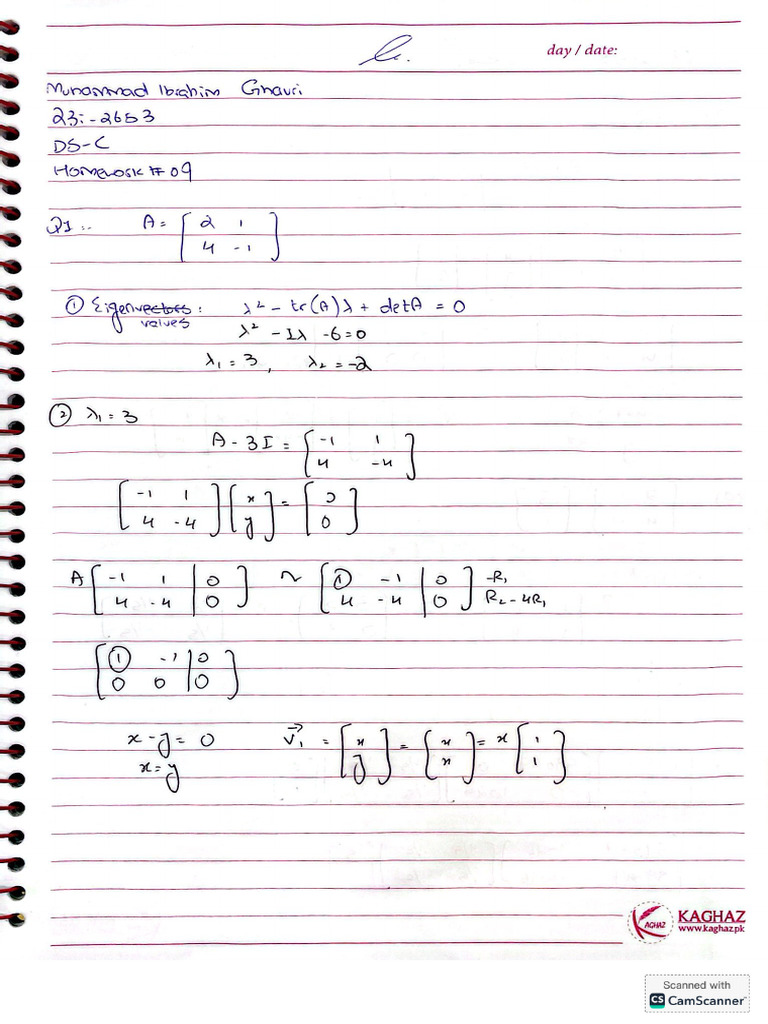 day / date:
Muhammad Ibrahim Ghauri
23i-2653
DS-C
Homework # 09
Q1:- A = [ 2 1
4 -1 ]
① Eigenvectors: λ² - tr(A)λ + detA = 0
values λ² - 1λ - 6 = 0
λ₁ = 3, λ₂ = -2
② λ₁ = 3
A - 3I = [ -1 1
4 -4 ]
[ -1 1 ] [ x ] = [ 0 ]
[ 4 -4 ] [ y ] [ 0 ]
A [ -1 1 | 0 ] ~ [ ① -1 | 0 ] -R₁
[ 4 -4 | 0 ] [ 4 -4 | 0 ] R₂-4R₁
[ ① -1 | 0 ]
[ 0 0 | 0 ]
x - y = 0 v⃗₁ = [ x ] = [ x ] = x [ 1 ]
x = y [ y ] [ x ] [ 1 ]
KAGHAZ
KAGHAZ
www.kaghaz.pk
Scanned with
CS CamScanner